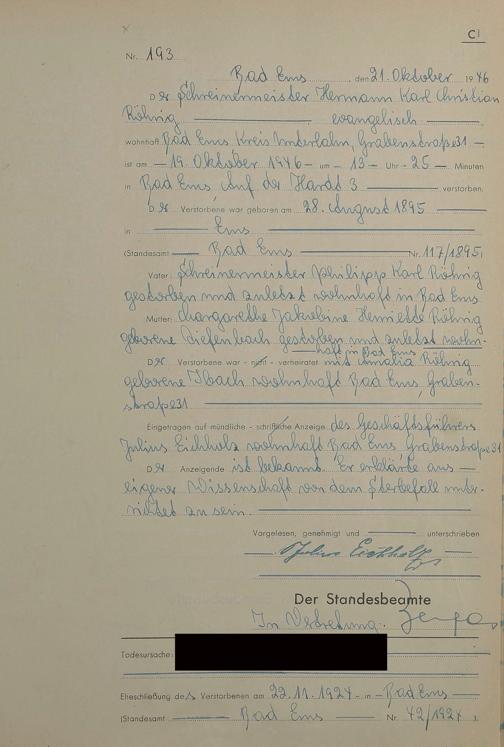 C
Nr. 193
Bad Ems, den 21. Oktober 1946
Der Schreinermeister Hermann Karl Christian
Röhrig — evangelisch —
wohnhaft Bad Ems Kreis Unterlahn, Grabenstraße 31 —
ist am — 19. Oktober 1946 — um — 13 — Uhr — 25 — Minuten
in Bad Ems Auf der Hardt 3 — verstorben.
Der Verstorbene war geboren am 28. August 1895 —
in — Ems —
(Standesamt — Bad Ems — Nr. 117/1895)
Vater: Schreinermeister Philipp Karl Röhrig
gestorben und zuletzt wohnhaft in Bad Ems
Mutter: Margarethe Jakobine Henriette Röhrig
geborene Diefenbach gestorben und zuletzt wohn-
haft in Bad Ems
Der Verstorbene war - nicht - verheiratet mit Amalia Röhrig
geborene Ibach wohnhaft Bad Ems, Graben-
straße 31
Eingetragen auf mündliche - schriftliche Anzeige des Geschäftsführers
Julius Eichholz wohnhaft Bad Ems Grabenstraße 31
Der Anzeigende ist bekannt. Er erklärte aus —
eigener Wissenschaft von dem Sterbefalle unter-
richtet zu sein.
Vorgelesen, genehmigt und — unterschrieben
Julius Eichholz
Der Standesbeamte
In Vertretung:
Todesursache:
Eheschließung des Verstorbenen am 22.11.1924 - in - Bad Ems —
(Standesamt — Bad Ems — Nr. 42/1924)